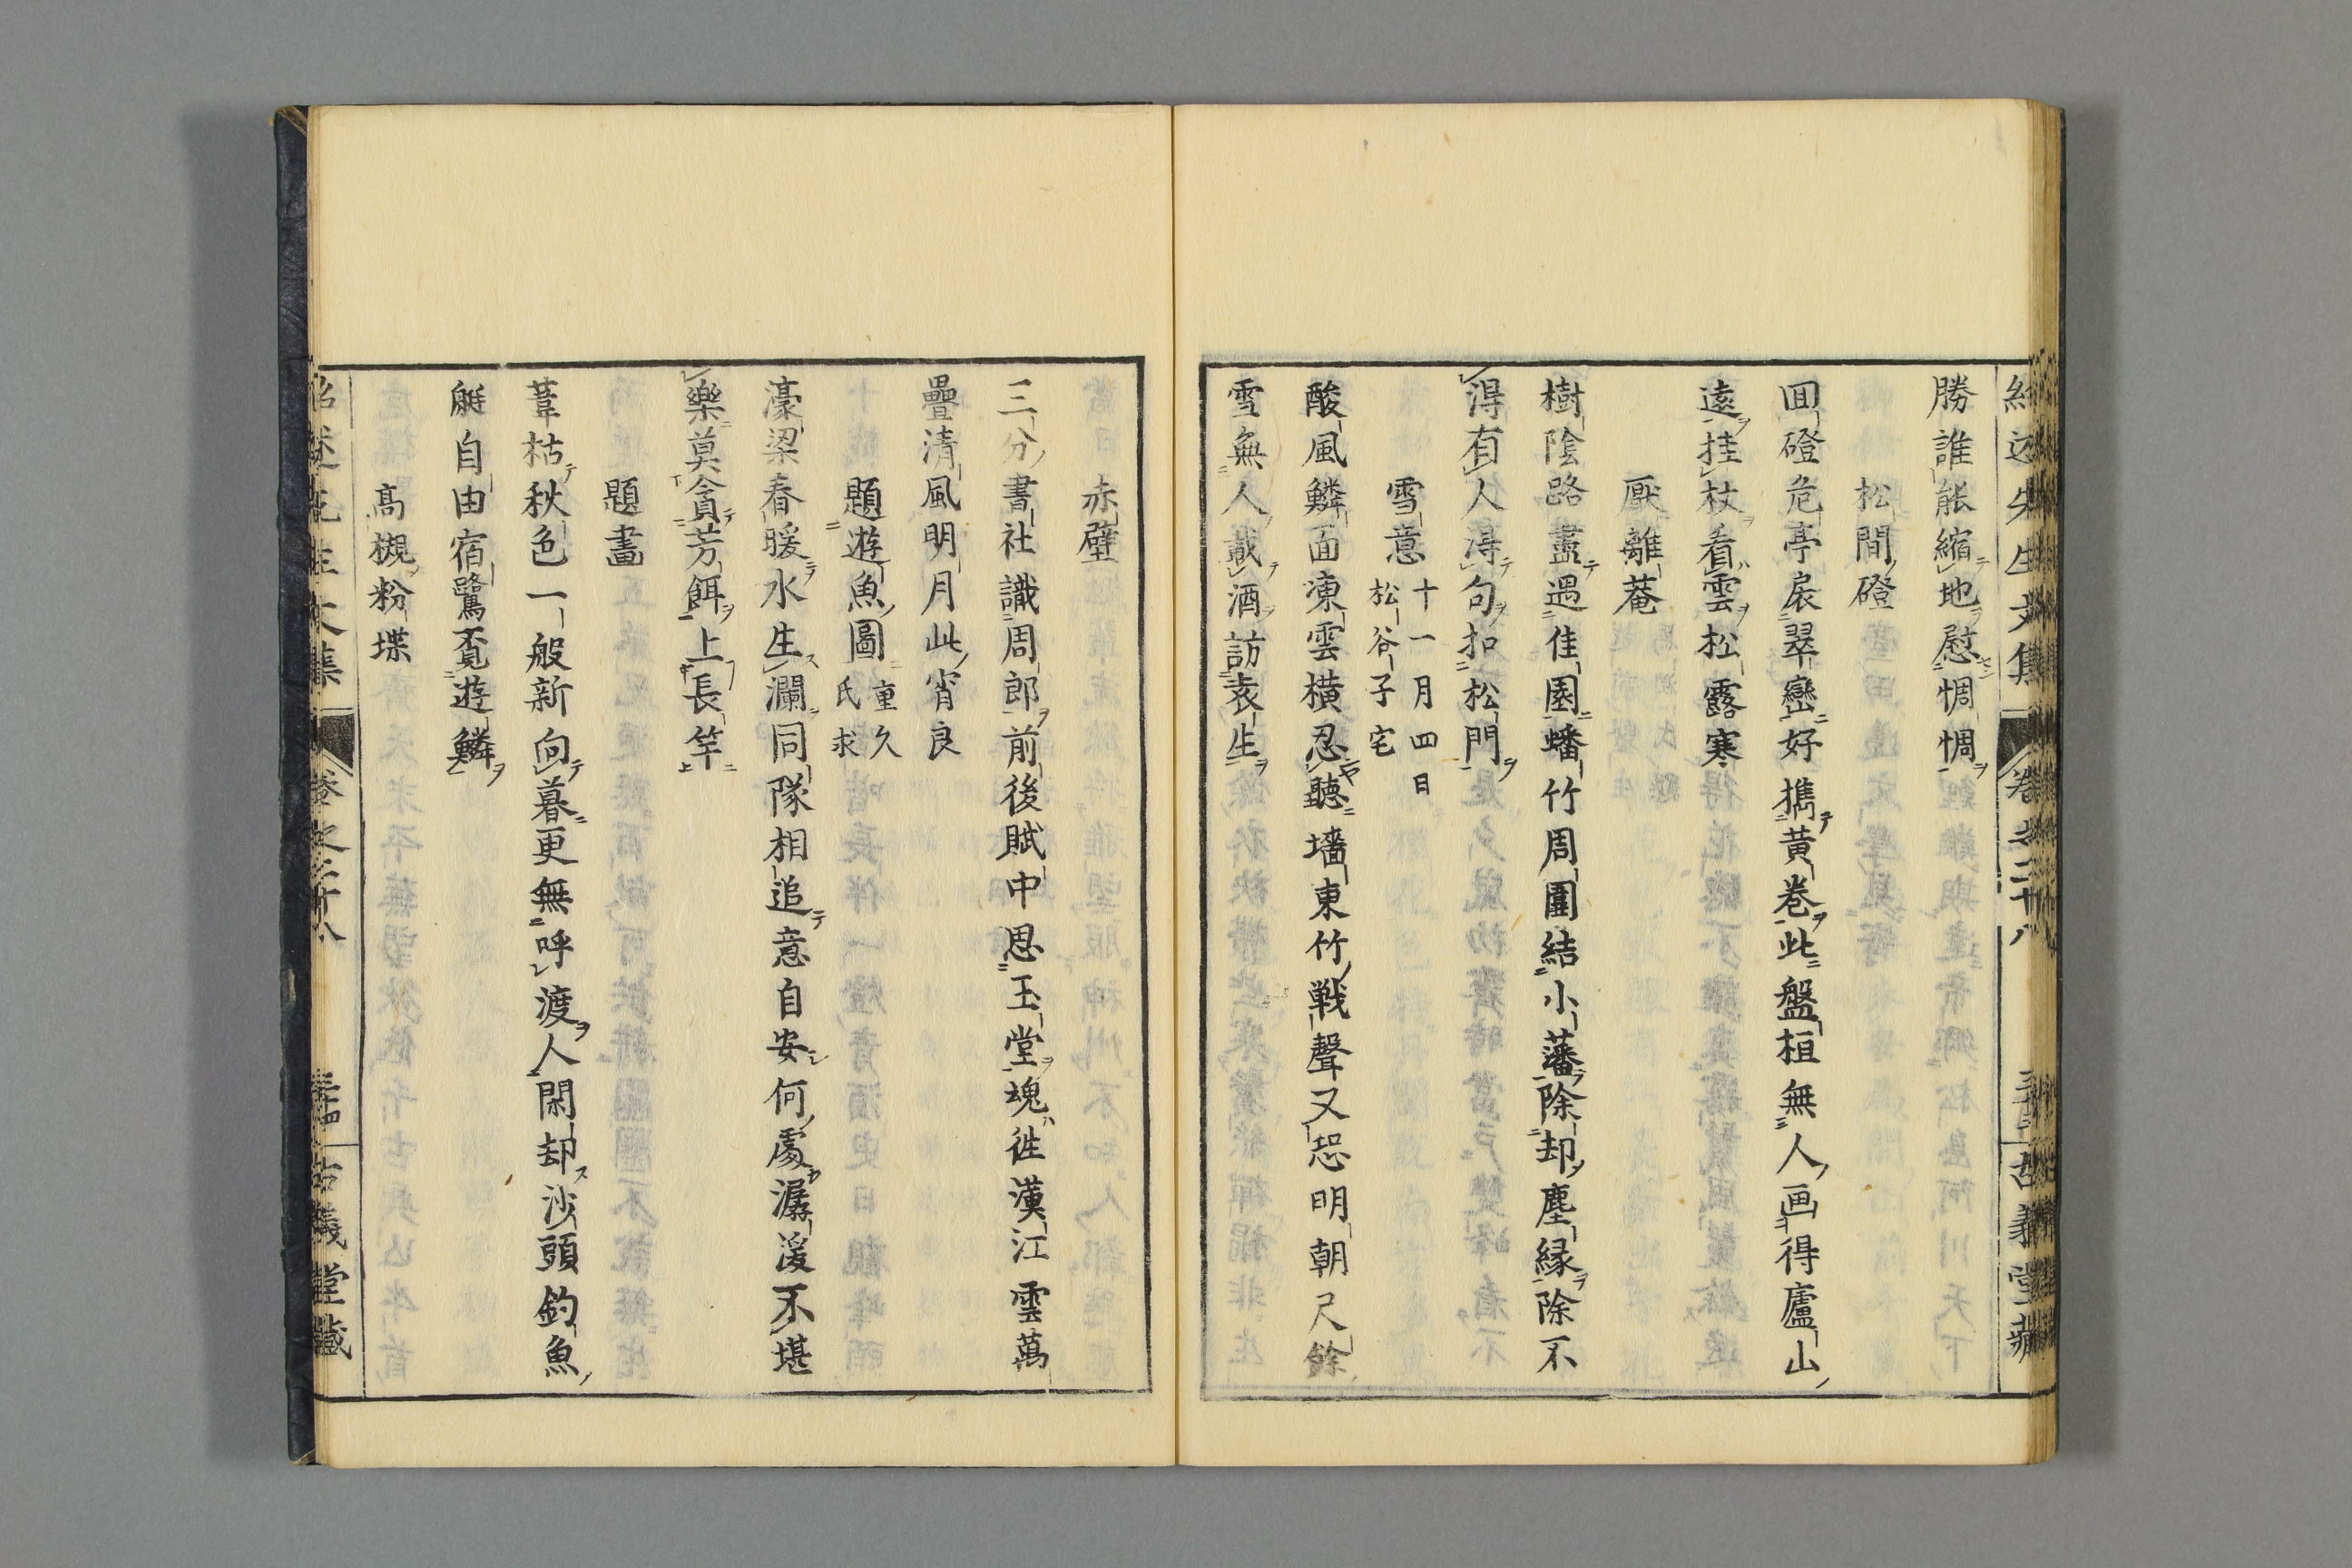 勝誰能縮地慰惆惆
松間磴
回磴危亭扆翠巒好攜黄巻此盤桓無人画得廬山
遠挂杖看雲松露寒
厭離菴
樹陰路盡遇佳園蟠竹周圍結小藩除却塵縁除不
淂有人淂句扣松門
雪意 十一月四日松谷子宅
酸風鱗面凍雲横忍聽墻東竹戦聲又恐明朝尺餘
雪無人載酒訪袁生
赤壁
三分書社識周郎前後賦中思玉堂魂徃漢江雲萬
疊清風明月此宵良
題遊魚圖 重久氏求
濠梁春暖水生瀾同隊相追意自安何處潺湲不堪
樂莫貪芳餌上長竿
題畫
葦枯秋色一般新向暮更無呼渡人閑却沙頭釣魚
艇自由宿鷺覔遊鱗
髙槻粉堞
紹述先生文集 卷之二十八 古義堂藏